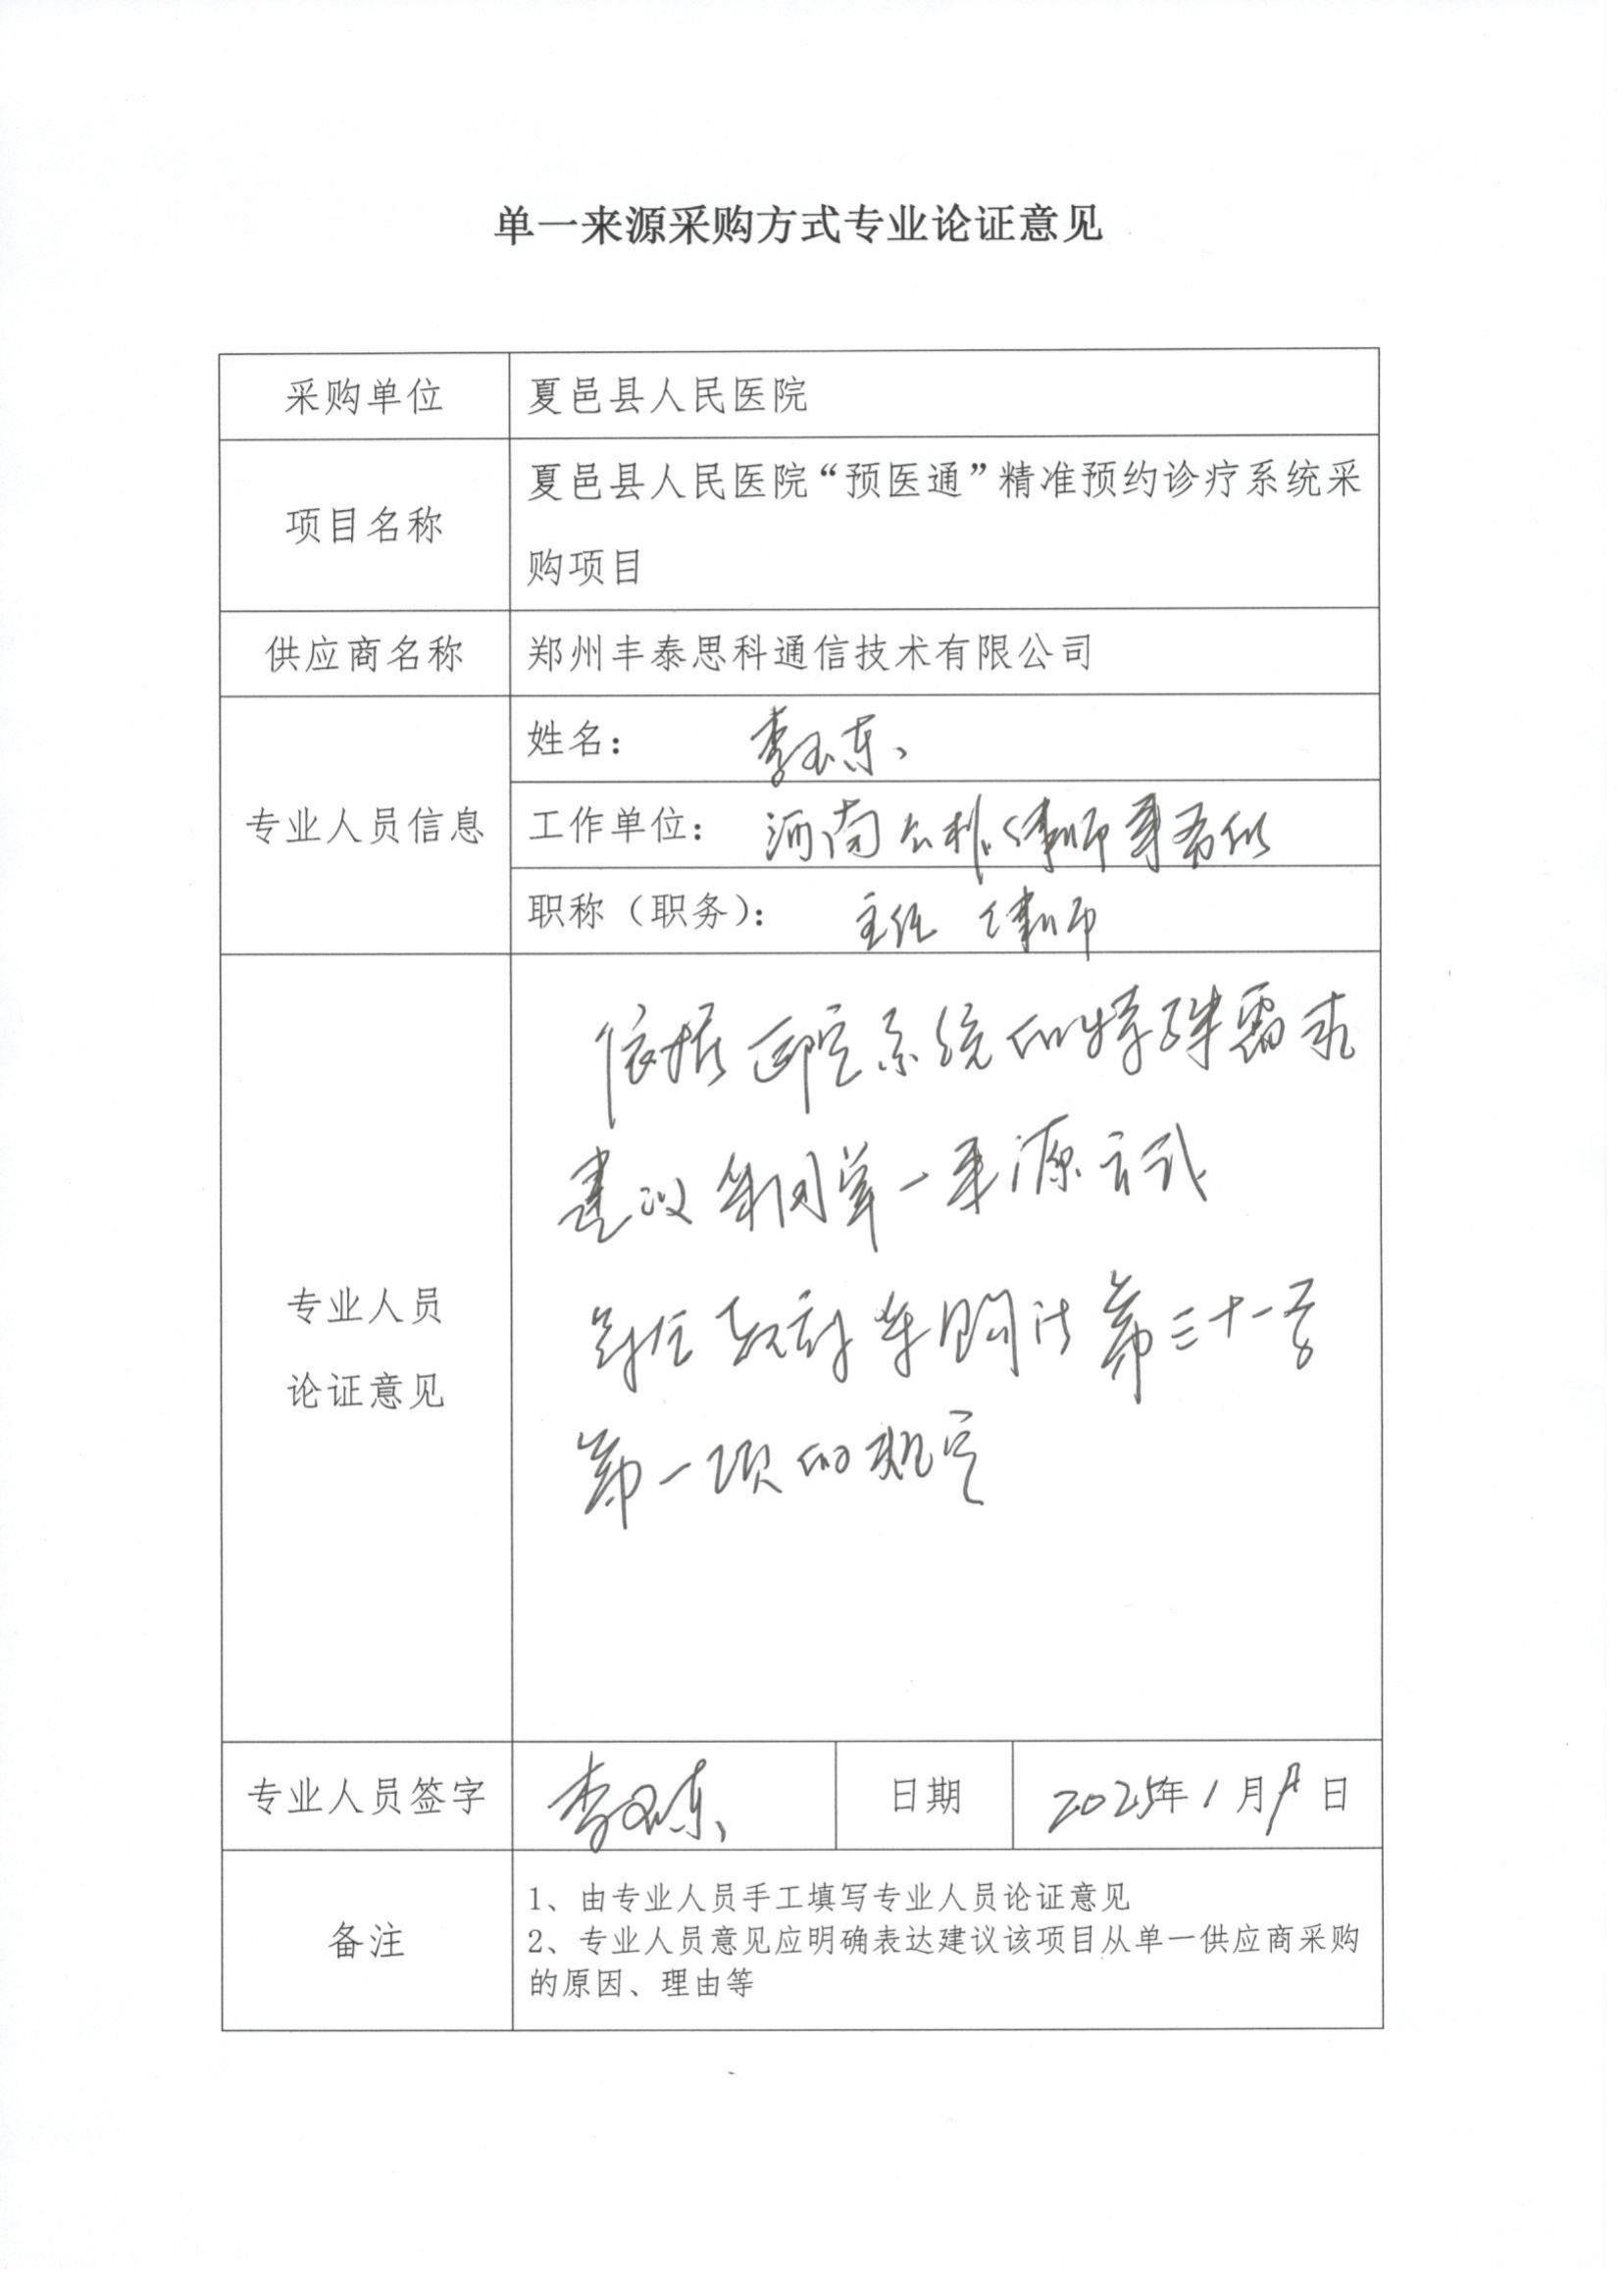 单一来源采购方式专业论证意见
采购单位
夏邑县人民医院
项目名称
夏邑县人民医院“预医通”精准预约诊疗系统采
购项目
供应商名称
郑州丰泰思科通信技术有限公司
专业人员信息
姓名： 李玉东
工作单位： 河南 律师事务所
职称（职务）： 主任 律师
专业人员
论证意见
依据 医院系统的特殊需求
建议采用单一来源方式
符合政府采购法第三十一条
第一项的规定
专业人员签字
李玉东
日期
2025年1月 日
备注
1、由专业人员手工填写专业人员论证意见
2、专业人员意见应明确表达建议该项目从单一供应商采购
的原因、理由等